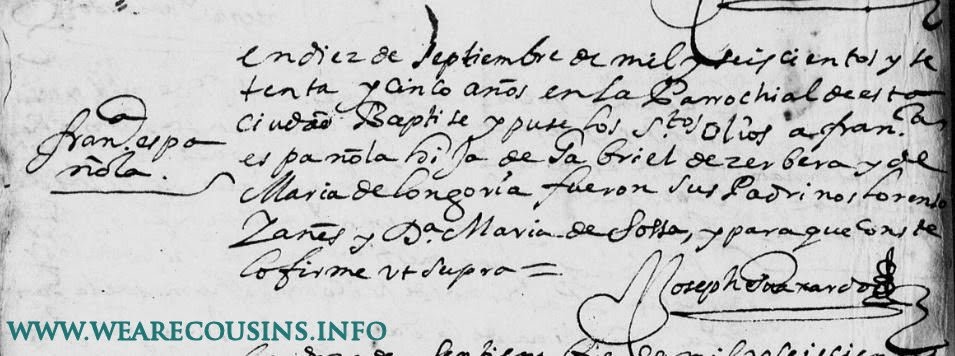 fran.ca espa
ñola.
en diez de septiembre de mil y seiscientos y se
tenta y cinco años en la Parrochial de esta
ciudad Baptise y puse los S.tos Olios a fran.ca
española hija de Gabriel de zerbera y de
Maria de longoria fueron sus Padrinos lorenso
Zanes y D.a Maria de Sossa, y para que conste
lo firme ut supra =
Joseph
WWW.WEARECOUSINS.INFO